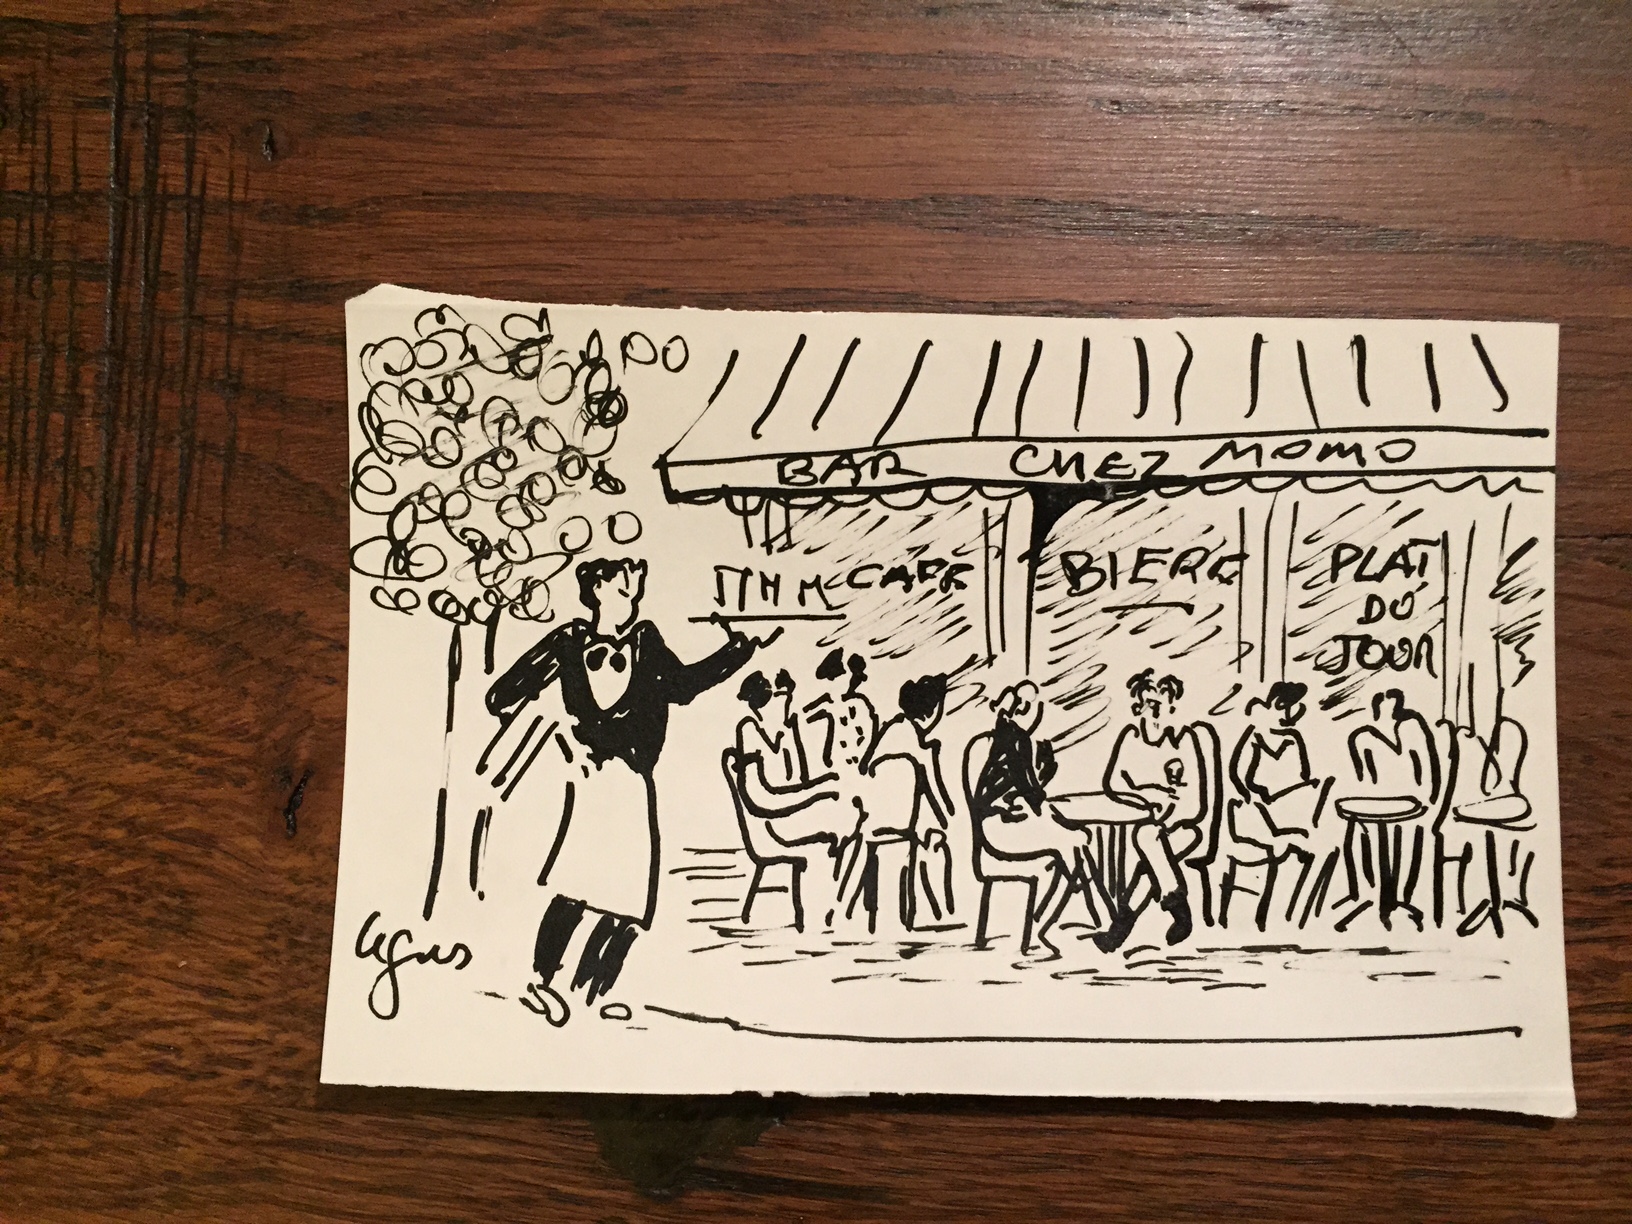 BAR CHEZ MOMO
CAFE
BIERE
PLAT
DU
JOUR